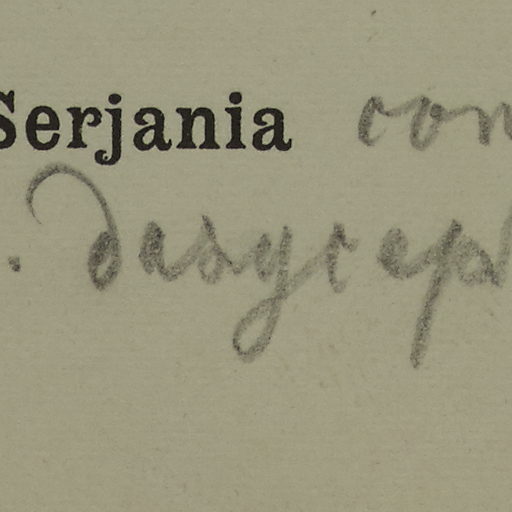 Serjania con
. dasycep